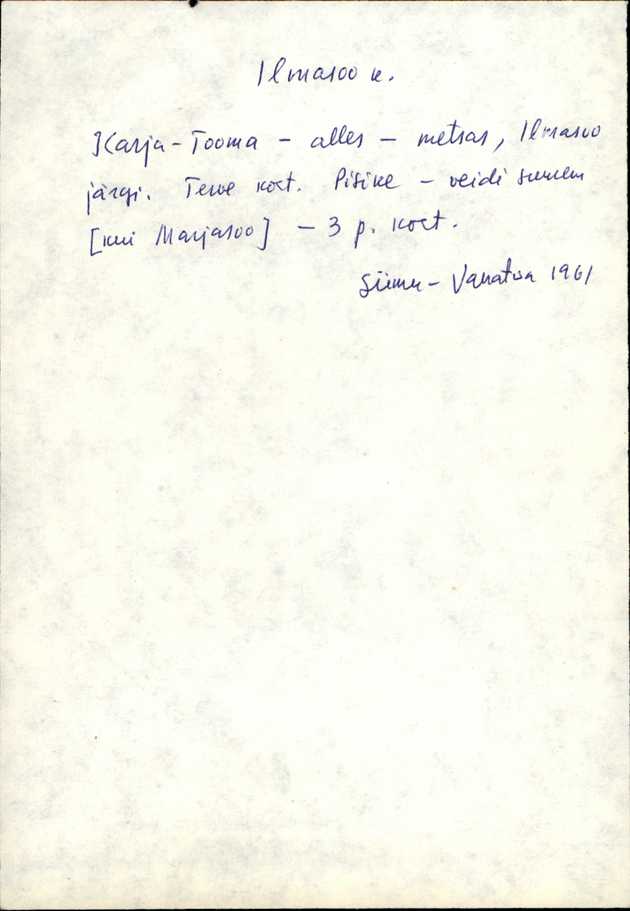 Ilmasoo k.
Karja-Tooma - alles - metsas, Ilmasoo
järgi. Terve kort. Pisike - veidi suurem
[kui Marjasoo] - 3 p. kort.
Siimu-Vanatoa 1961